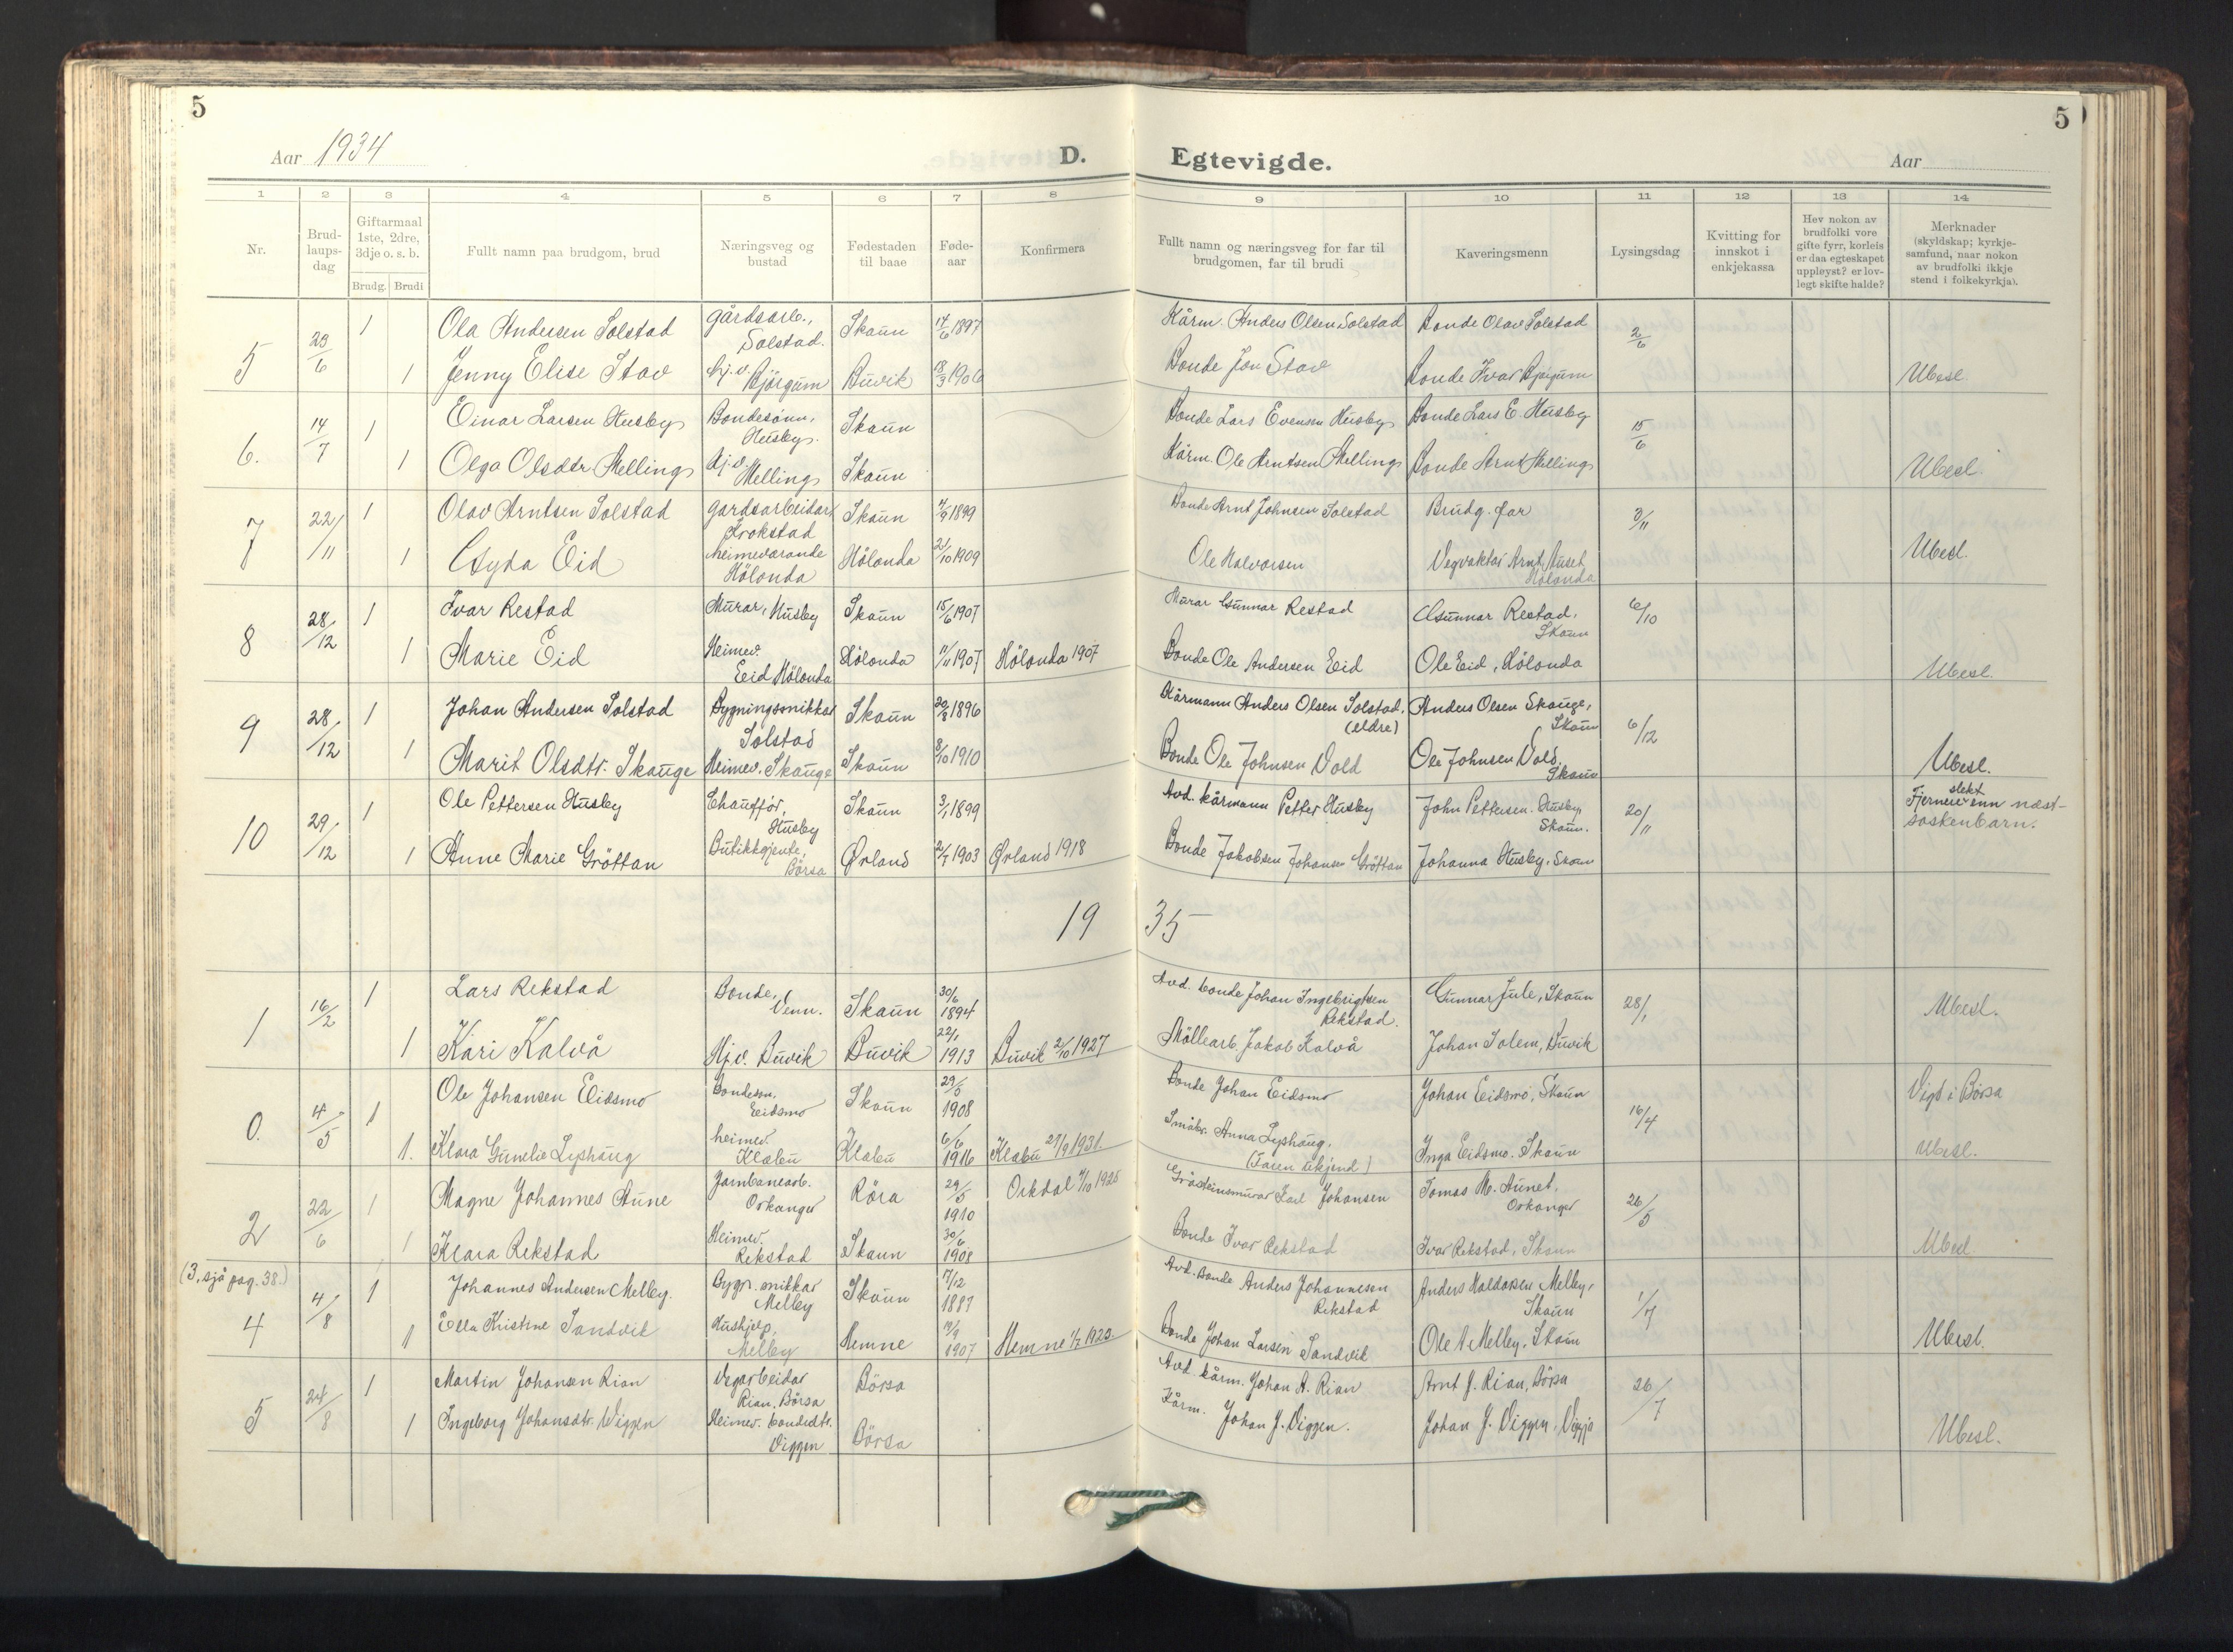 5
5
Aar 1934
D.
Egtevigde.
Aar
1 2 3 4 5 6 7 8 9 10 11 12 13 14
Nr.
Brud-
laups-
dag
Giftarmaal
1ste, 2dre,
3dje o. s. b.
Brudg. Brudi
Fullt namn paa brudgom, brud
Næringsveg og
bustad
Fødestaden
til baae
Føde-
aar
Konfirmera
Fullt namn og næringsveg for far til
brudgomen, far til brudi
Kaveringsmenn
Lysingsdag
Kvitting for
innskot i
enkjekassa
Hev nokon av
brudfolki vore
gifte fyrr, korleis
er daa egteskapet
uppløyst? er lov-
legt skifte halde?
Merknader
(skyldskap; kyrkje-
samfund, naar nokon
av brudfolki ikkje
stend i folkekyrkja).
5 23/6 1 Ola Andersen Solstad gårdsarb., Solstad. Skaun 14/6 1897 Kårm. Anders Olsen Solstad Bonde Olav Solstad 2/6
1 Jenny Elise Stav Hj.v. Bjørgum Buvik 18/3 1906 Bonde Jon Stav Bonde Ivar Bjørgum Ubesl.
6. 14/7 1 Einar Larsen Husby Bondesønn, Husby. Skaun Bonde Lars Evensen Husby Bonde Lars E. Husby 15/6
1 Olga Olsdtr. Melling Hj.v. Melling Skaun Kårm. Ole Arntsen Melling Bonde Arnt Melling Ubesl.
7 22/11 1 Olav Arntsen Solstad gardsarbeidar Krokstad Skaun 4/9 1899 Bonde Arnt Johnsen Solstad Brudg. far 3/11
1 Gyda Eid heimeverande Hölonda Hölonda 21/10 1909 Ole Halvorsen Vegvaktar Arnt Huset Hölonda Ubesl.
8 28/12 1 Ivar Restad Murar, Husby Skaun 15/6 1907 Murar Gunnar Restad Gunnar Restad, Skaun 6/10
1 Marie Eid Heimev. Eid Hölonda Hölonda 11/11 1907 Hölonda 1907 Bonde Ole Andersen Eid Ole Eid, Hölonda Ubesl.
9 28/12 1 Johan Andersen Solstad Bygningssnikkar Solstad Skaun 20/8 1896 Kårmann Anders Olsen Solstad, (eldre) Anders Olsen Skauge, Skaun 6/12
1 Marit Olsdtr. Skauge Heimev. Skauge Skaun 3/10 1910 Bonde Ole Johnsen Vold Ole Johnsen Vold. Skaun Ubesl.
10 29/12 1 Ole Pettersen Husby Chaufför, Husby Skaun 3/1 1899 Avd. kårmann Petter Husby John Pettersen Husby, Skaun. 20/11 Fjernere slekt enn næst-
søskenbarn.
1 Anne Marie Gröttan Butikkgjente, Börsa Ørland 2/7 1903 Ørland 1918 Bonde Jakobsen Johansen Gröttan Johanna Husby, Skaun
19 35
1 16/2 1 Lars Rekstad Bonde, Venn. Skaun 30/6 1894 Avd. bonde Johan Ingebrigtsen Rekstad. Gunnar Jule, Skaun 28/1 Ubesl.
1 Kari Kalvå Hj.v. Buvik Buvik 22/1 1913 Buvik 2/10 1927 Möllearb. Jakob Kalvå Johan Solem, Buvik
0. 4/5 1 Ole Johansen Eidsmo Bondesøn, Eidsmo Skaun 29/5 1908 Bonde Johan Eidsmo Johan Eidsmo, Skaun 16/4 Vigd i Börsa
1. Klara Gunelie Lyshaug heimev. Klæbu Klæbu 6/6 1916 Klæbu 27/9 1931. Småbr. Anna Lyshaug. (Faren ukjend.) Inga Eidsmo. Skaun Ubesl.
2 22/6 1 Magne Johannes Aune Jarnbanearb. Orkanger Röra 29/5 1910 Orkdal 4/10 1925 Gråsteinsmurar Karl Johansen Tomas M. Aunet. Orkanger 26/5
1 Klara Rekstad Heimev. Rekstad Skaun 30/6 1908 Bonde Ivar Rekstad Ivar Rekstad, Skaun Ubesl.
(3, sjå pag. 38.)
4 4/8 1 Johannes Andersen Melby. Bygn. snikkar Melby Skaun 7/12 1887 Avd. Bonde Anders Johannesen Rekstad Anders Haldorsen Melby, Skaun 1/7
1 Ella Kristine Sandvik Hushjelp, Melby Hemne 19/9 1907 Hemne 1/7 1923. Bonde Johan Larsen Sandvik Ole A Melby, Skaun Ubesl.
5 24/8 1 Martin Johansen Rian Vegarbeidar Rian, Börsa Börsa Avd. kårm. Johan A. Rian Arnt J. Rian, Börsa 26/7
1 Ingeborg Johansdtr. Viggen Heimev. bondedtr. Viggen Börsa Kårm. Johan J. Viggen. Johan J. Viggen, Viggja Ubesl.